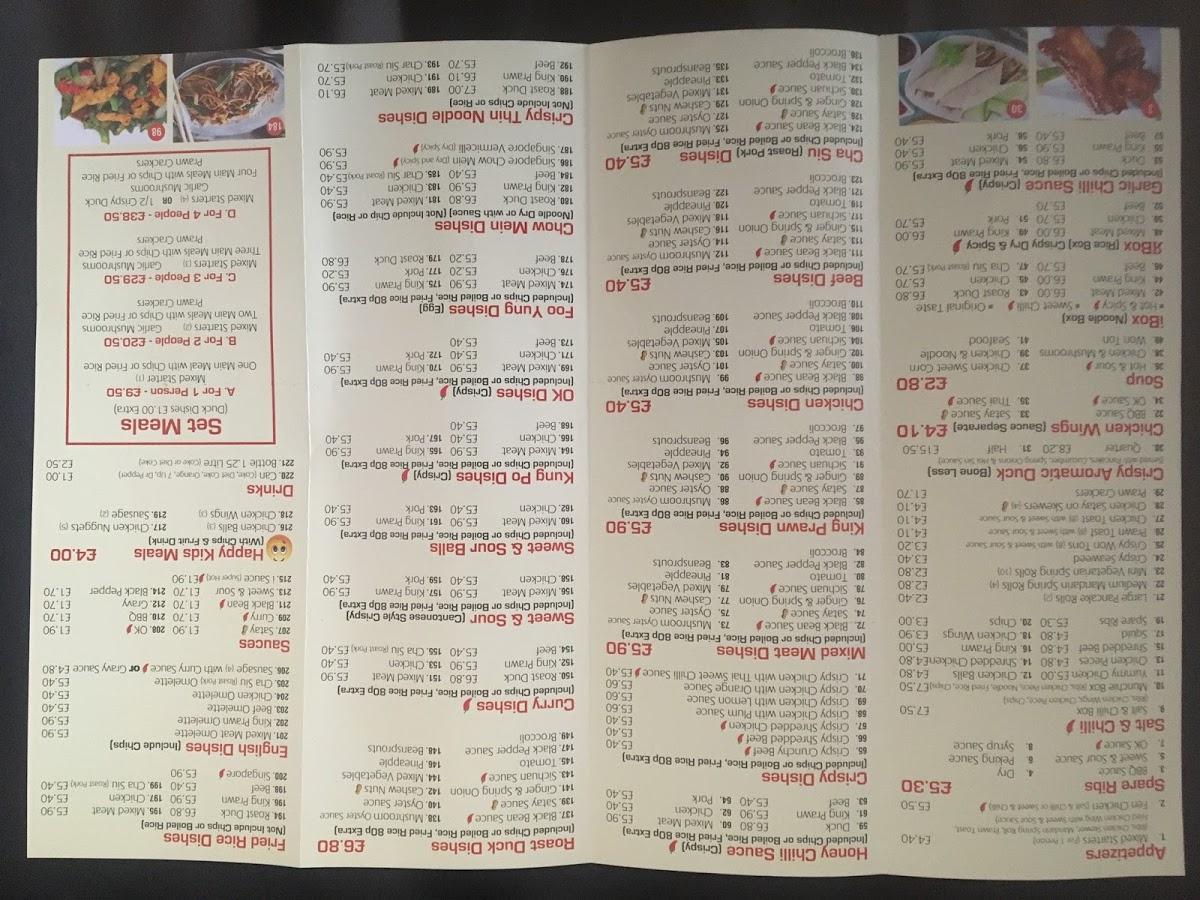 Appetizers
1. Mixed Starters (For 1 Person) £4.40
(Ribs, Chicken Skewer, Mandarin Spring Roll, Prawn Toast,
Fried Chicken Wing with Sweet & Sour Sauce)
2. Fein Chicken (Salt & Chilli or Sweet & Chilli) £5.50
Spare Ribs £5.30
3. BBQ Sauce 4. Dry
5. Sweet & Sour Sauce 6. Peking Sauce
7. OK Sauce 8. Syrup Sauce
Salt & Chilli
9. Salt & Chilli Box £7.50
(Ribs, Chicken Wings, Chicken Piece, Chips)
10. Munchie Box (Ribs, Chicken Piece, Noodle, Fried Rice, Chips) £7.50
11. Yummy Chicken £5.00 12. Chicken Balls £4.80
13. Chicken Pieces £4.80 14. Shredded Chicken £4.80
15. Shredded Beef £4.80 16. King Prawn £5.00
17. Squid £4.80 18. Chicken Wings £3.90
19. Spare Ribs £5.30 20. Chips £3.00
21. Large Pancake Rolls (2) £2.40
22. Medium Mandarin Spring Rolls (4) £2.80
23. Mini Vegetarian Spring Rolls (10) £2.80
24. Crispy Seaweed £3.40
25. Crispy Won Tons (8) with Sweet & Sour Sauce £3.20
26. Prawn Toast (8) with Sweet & Sour Sauce £4.10
27. Chicken Toast (8) with Sweet & Sour Sauce £4.10
28. Chicken Satay on Skewers (4) £4.10
29. Prawn Crackers £1.70
Crispy Aromatic Duck (Bone Less)
Served with Pancakes, Cucumber, Spring Onions & Hoi Sin Sauce)
30. Quarter £8.20 31. Half £15.50
Chicken Wings (Sauce Separate) £4.10
32. BBQ Sauce 33. Satay Sauce
34. OK Sauce 35. Thai Sauce
Soup £2.80
36. Hot & Sour 37. Chicken Sweet Corn
38. Chicken & Mushrooms 39. Chicken & Noodle
40. Won Ton 41. Seafood
iBox (Noodle Box)
* Hot & Spicy * Sweet Chilli * Original Taste
42. Mixed Meat £6.00 43. Roast Duck £6.80
44. King Prawn £6.00 45. Chicken £5.70
46. Beef £5.70 47. Cha Siu (Roast Pork) £5.70
ЯBox (Rice Box) Crispy Dry & Spicy
48. Mixed Meat £6.00 49. King Prawn £6.00
50. Chicken £5.70 51. Pork £5.70
52. Beef £5.70
Garlic Chilli Sauce (Crispy)
(Included Chips or Boiled Rice, Fried Rice 80p Extra)
53. Duck £6.80 54. Mixed Meat £5.90
55. King Prawn £5.90 56. Chicken £5.40
57. Beef £5.40 58. Pork £5.40
3
30
Honey Chilli Sauce (Crispy)
(Included Chips or Boiled Rice, Fried Rice 80p Extra)
59. Duck £6.80 60. Mixed Meat £5.90
61. King Prawn £5.90 62. Chicken £5.40
63. Beef £5.40 64. Pork £5.40
Crispy Dishes
(Included Chips or Boiled Rice, Fried Rice 80p Extra)
65. Crispy Crunchy Beef £5.40
66. Crispy Shredded Beef £5.40
67. Crispy Shredded Chicken £5.40
68. Crispy Chicken with Plum Sauce £5.60
69. Crispy Chicken with Lemon Sauce £5.60
70. Crispy Chicken with Orange Sauce £5.60
71. Crispy Chicken with Thai Sweet Chilli Sauce £5.40
Mixed Meat Dishes £5.90
(Included Chips or Boiled Rice, Fried Rice 80p Extra)
72. Black Bean Sauce 73. Mushroom Oyster Sauce
74. Satay Sauce 75. Oyster Sauce
76. Ginger & Spring Onion 77. Cashew Nuts
78. Sichuan Sauce 79. Mixed Vegetables
80. Tomato 81. Pineapple
82. Black Pepper Sauce 83. Beansprouts
84. Broccoli
King Prawn Dishes £5.90
(Included Chips or Boiled Rice, Fried Rice 80p Extra)
85. Black Bean Sauce 86. Mushroom Oyster Sauce
87. Satay Sauce 88. Oyster Sauce
89. Ginger & Spring Onion 90. Cashew Nuts
91. Sichuan Sauce 92. Mixed Vegetables
93. Tomato 94. Pineapple
95. Black Pepper Sauce 96. Beansprouts
97. Broccoli
Chicken Dishes £5.40
(Included Chips or Boiled Rice, Fried Rice 80p Extra)
98. Black Bean Sauce 99. Mushroom Oyster Sauce
100. Satay Sauce 101. Oyster Sauce
102. Ginger & Spring Onion 103. Cashew Nuts
104. Sichuan Sauce 105. Mixed Vegetables
106. Tomato 107. Pineapple
108. Black Pepper Sauce 109. Beansprouts
110. Broccoli
Beef Dishes £5.40
(Included Chips or Boiled Rice, Fried Rice 80p Extra)
111. Black Bean Sauce 112. Mushroom Oyster Sauce
113. Satay Sauce 114. Oyster Sauce
115. Ginger & Spring Onion 116. Cashew Nuts
117. Sichuan Sauce 118. Mixed Vegetables
119. Tomato 120. Pineapple
121. Black Pepper Sauce 122. Beansprouts
123. Broccoli
Cha Siu (Roast Pork) Dishes £5.40
(Included Chips or Boiled Rice, Fried Rice 80p Extra)
124. Black Bean Sauce 125. Mushroom Oyster Sauce
126. Satay Sauce 127. Oyster Sauce
128. Ginger & Spring Onion 129. Cashew Nuts
130. Sichuan Sauce 131. Mixed Vegetables
132. Tomato 133. Pineapple
134. Black Pepper Sauce 135. Beansprouts
136. Broccoli
Roast Duck Dishes £6.80
(Included Chips or Boiled Rice, Fried Rice 80p Extra)
137. Black Bean Sauce 138. Mushroom Oyster Sauce
139. Satay Sauce 140. Oyster Sauce
141. Ginger & Spring Onion 142. Cashew Nuts
143. Sichuan Sauce 144. Mixed Vegetables
145. Tomato 146. Pineapple
147. Black Pepper Sauce 148. Beansprouts
149. Broccoli
Curry Dishes
(Included Chips or Boiled Rice, Fried Rice 80p Extra)
150. Roast Duck £6.80 151. Mixed Meat £5.90
152. King Prawn £5.90 153. Chicken £5.40
154. Beef £5.40 155. Cha Siu (Roast Pork) £5.40
Sweet & Sour (Cantonese Style Crispy)
(Included Chips or Boiled Rice, Fried Rice 80p Extra)
156. Mixed Meat £5.90 157. King Prawn £5.90
158. Chicken £5.40 159. Pork £5.40
Sweet & Sour Balls
(Included Chips or Boiled Rice, Fried Rice 80p Extra)
160. Mixed Meat £5.90 161. King Prawn £5.90
162. Chicken £5.40 163. Pork £5.40
Kung Po Dishes (Crispy)
(Included Chips or Boiled Rice, Fried Rice 80p Extra)
164. Mixed Meat £5.90 165. King Prawn £5.90
166. Chicken £5.40 167. Pork £5.40
168. Beef £5.40
OK Dishes (Crispy)
(Included Chips or Boiled Rice, Fried Rice 80p Extra)
169. Mixed Meat £5.90 170. King Prawn £5.90
171. Chicken £5.40 172. Pork £5.40
173. Beef £5.40
Foo Yung Dishes (Egg)
(Included Chips or Boiled Rice, Fried Rice 80p Extra)
174. Mixed Meat £5.90 175. King Prawn £5.90
176. Chicken £5.20 177. Pork £5.20
178. Beef £5.20 179. Roast Duck £6.80
Chow Mein Dishes
(Noodle Dry or with Sauce) (Not Include Chip or Rice)
180. Roast Duck £6.80 181. Mixed Meat £5.90
182. King Prawn £5.90 183. Chicken £5.40
184. Beef £5.40 185. Cha Siu (Roast Pork) £5.40
186. Singapore Chow Mein (Dry and Spicy) £5.90
187. Singapore Vermicelli (Dry Spicy) £5.90
Crispy Thin Noodle Dishes
(Not Include Chips or Rice)
188. Roast Duck £7.00 189. Mixed Meat £6.10
190. King Prawn £6.10 191. Chicken £5.70
192. Beef £5.70 193. Char Siu (Roast Pork) £5.70
Fried Rice Dishes
(Not Include Chips or Boiled Rice)
194. Roast Duck £6.80 195. Mixed Meat £5.90
196. King Prawn £5.90 197. Chicken £5.40
198. Beef £5.40 199. Cha Siu (Roast Pork) £5.40
200. Singapore £5.90
English Dishes (Include Chips)
201. Mixed Meat Omelette £5.90
202. King Prawn Omelette £5.90
203. Beef Omelette £5.40
204. Chicken Omelette £5.40
205. Cha Siu (Roast Pork) Omelette £5.40
206. Sausage (4) with Curry Sauce or Gravy Sauce £4.80
Sauces
207. Satay £1.90 208. OK £1.90
209. Curry £1.70 210. BBQ £1.70
211. Black Bean £1.70 212. Gravy £1.70
213. Sweet & Sour £1.70 214. Black Pepper £1.70
215. i Sauce (Super Hot) £1.90
Happy Kids Meals £4.00
(With Chips & Fruit Drink)
216. Chicken Balls (3) 217. Chicken Nuggets (5)
218. Chicken Wings (3) 219. Sausage (2)
Drinks
220. Can (Coke, Diet Coke, Orange, 7 Up, Dr Pepper) £1.00
221. Bottle 1.25 Litre (Coke or Diet Coke) £2.50
Set Meals
(Duck Dishes £1.00 Extra)
A. For 1 Person - £9.50
Mixed Starter (1)
One Main Meal with Chips or Fried Rice
B. For 2 People - £20.50
Mixed Starters (2) Garlic Mushrooms
Two Main Meals with Chips or Fried Rice
Prawn Crackers
C. For 3 People - £29.50
Mixed Starters (3) Garlic Mushrooms
Three Main Meals with Chips or Fried Rice
Prawn Crackers
D. For 4 People - £38.50
Mixed Starters (4) OR 1/2 Crispy Duck
Garlic Mushrooms
Four Main Meals with Chips or Fried Rice
Prawn Crackers
184
98